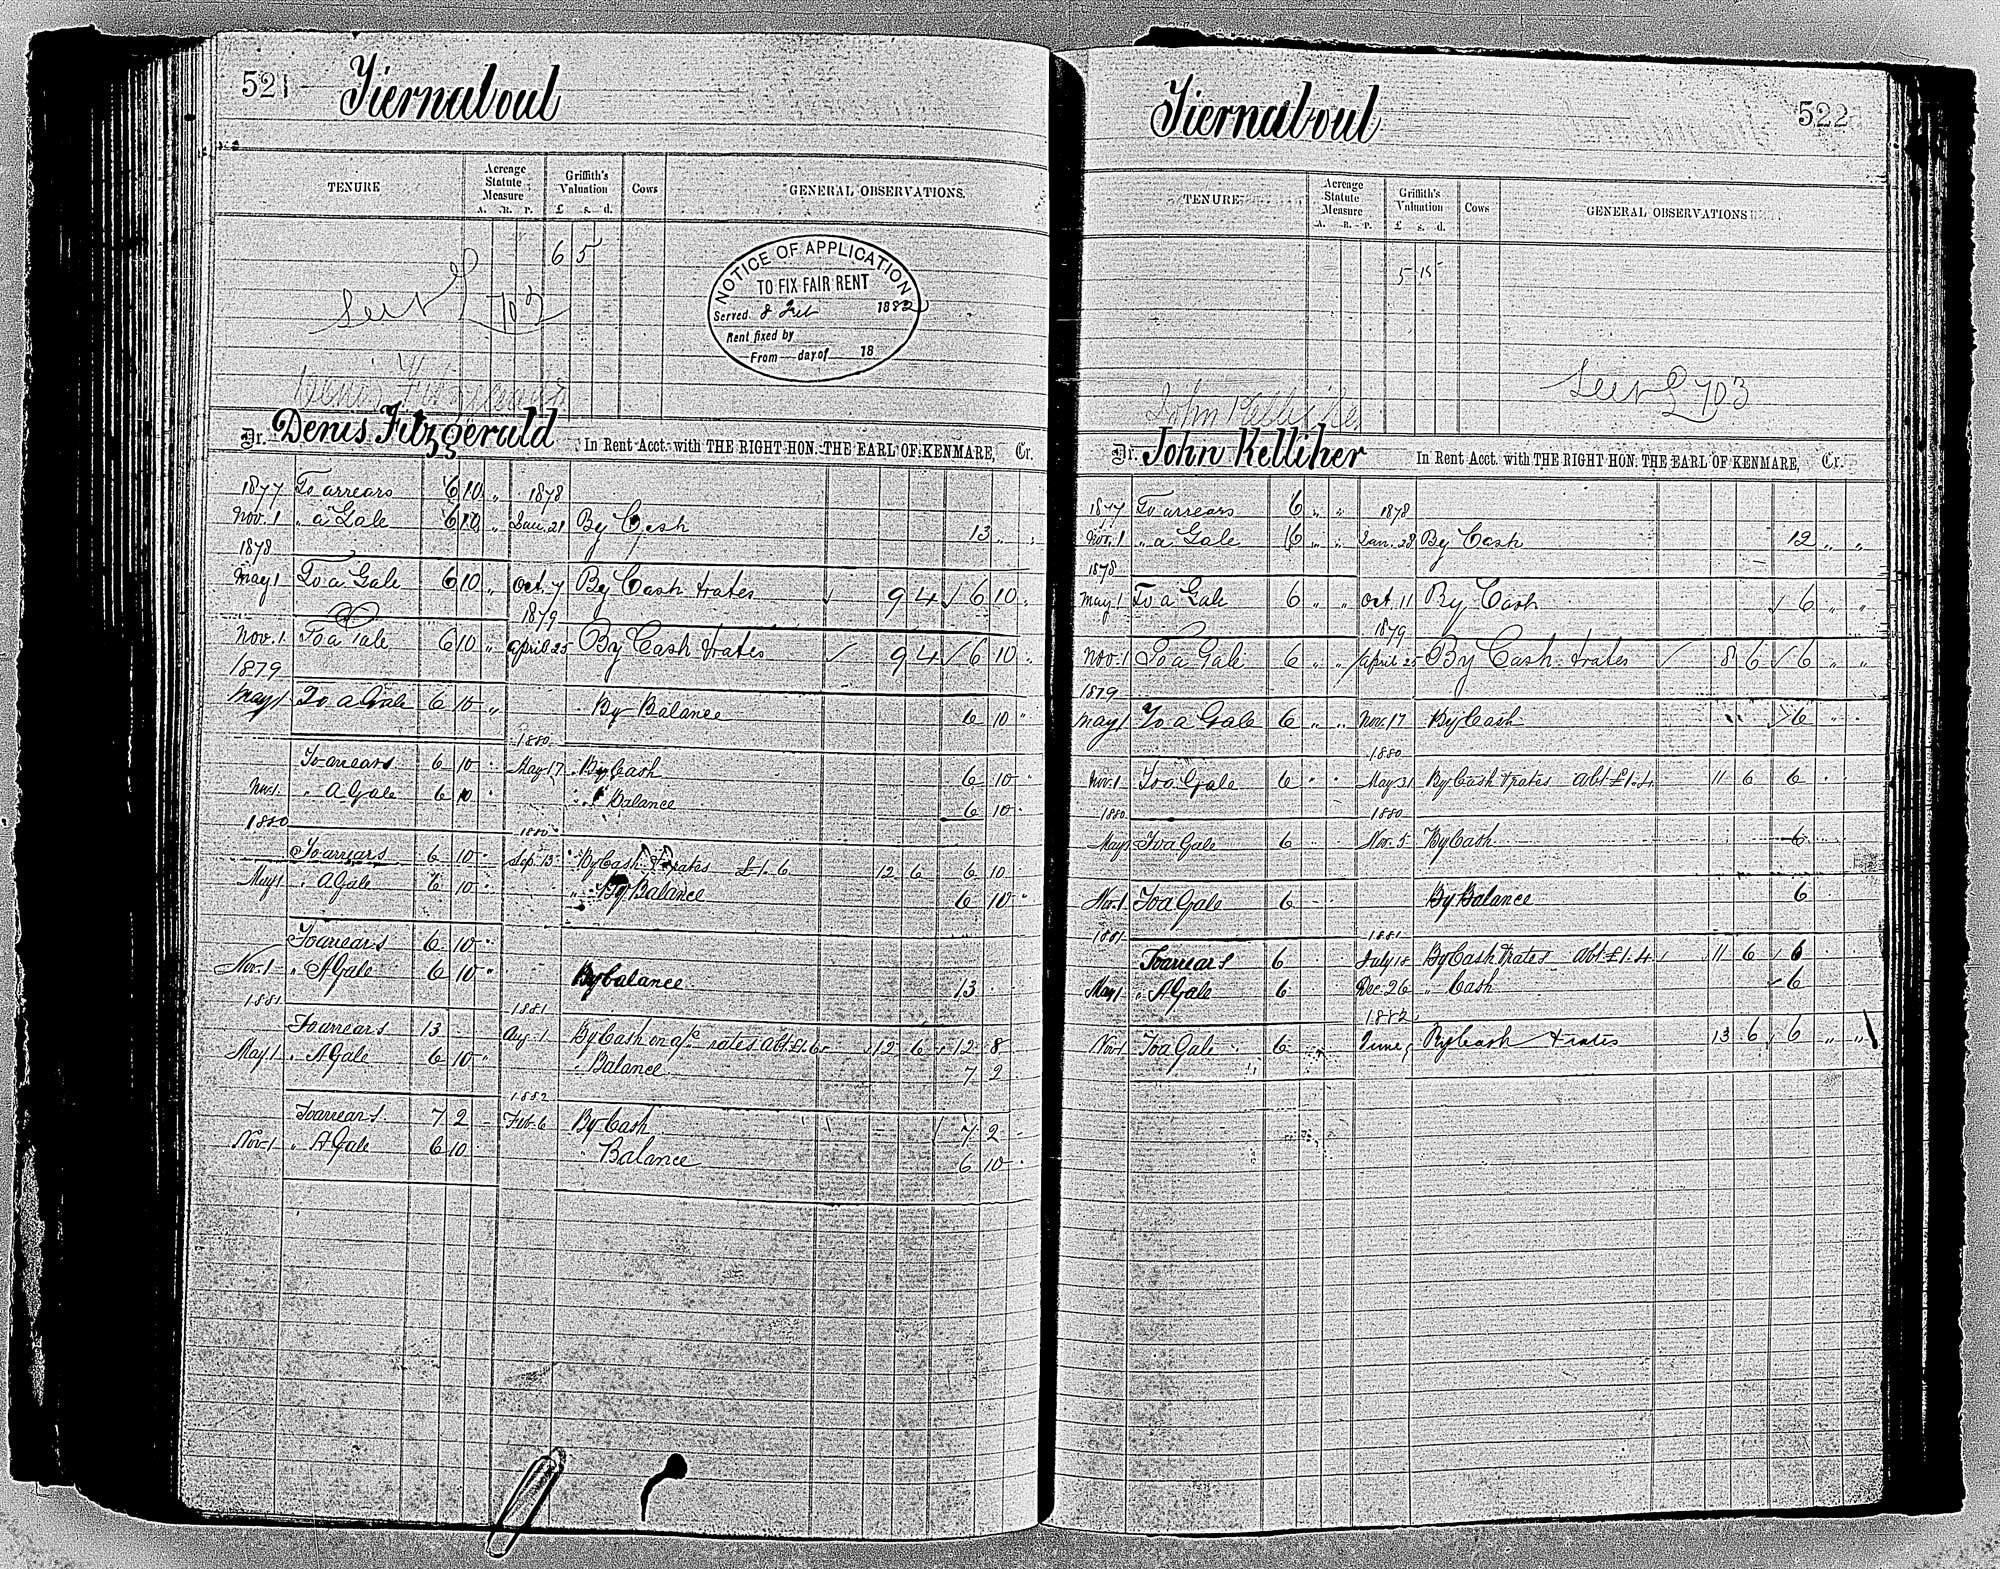 521
Tiernaboul
TENURE
Acreage Statute Measure
A. R. P.
Griffith's Valuation
£ s. d.
Cows
GENERAL OBSERVATIONS.
6 5
103
NOTICE OF APPLICATION
TO FIX FAIR RENT
Served 8 Feb 1882
Rent fixed by
From day of 18
Denis Fitzgerald
Dr. Denis Fitzgerald In Rent Acct. with THE RIGHT HON. THE EARL OF KENMARE, Cr.
1877 To arrears 6 10 " 1878
Nov. 1 " a Gale 6 10 " Jan. 21 By Cash 13 " "
1878
May 1 To a Gale 6 10 " Oct. 7 By Cash & rates 9 4 6 10 "
1879
Nov. 1 To a Gale 6 10 " April 25 By Cash & rates 9 4 6 10 "
1879
May 1 To a Gale 6 10 " By Balance 6 10 "
1880
To arrears 6 10 May 17 By Cash 6 10
Nov. 1 " A Gale 6 10 " Balance 6 10
1880 1880
To arrears 6 10 Sep. 13 By Cash & rates £1.6 12 6 6 10
May 1 " A Gale 6 10 " By Balance 6 10
To arrears 6 10
Nov. 1 " A Gale 6 10 " By balance 13
1881 1881
To arrears 13 Aug. 1 By Cash on a/c rates abt £1.6 12 6 12 8
May 1 " A Gale 6 10 " Balance 7 2
1882
To arrears 7 2 Feb. 6 By Cash 7 2
Nov. 1 " A Gale 6 10 " Balance 6 10
522
Tiernaboul
TENURE
Acreage Statute Measure
A. R. P.
Griffith's Valuation
£ s. d.
Cows
GENERAL OBSERVATIONS
5 15
703
John Kelliher
Dr. John Kelliher In Rent Acct. with THE RIGHT HON. THE EARL OF KENMARE, Cr.
1877 To arrears 6 " " 1878
Nov. 1 " a Gale 6 " " Jan. 28 By Cash 12 " "
1878
May 1 To a Gale 6 " " Oct. 11 By Cash 6 " "
1879
Nov. 1 To a Gale 6 " " April 25 By Cash & rates 8 6 6 " "
1879
May 1 To a Gale 6 " " Nov. 17 By Cash 6
1880
Nov. 1 To a Gale 6 May 31 By Cash & rates abt £1.4 11 6 6
1880 1880
May 1 To a Gale 6 Nov. 5 By Cash 6
Nov. 1 To a Gale 6 By Balance 6
1881 1881
To arrears 6 July 18 By Cash & rates abt £1.4 11 6 6
May 1 " A Gale 6 Dec. 26 " Cash 6
1882
Nov. 1 To a Gale 6 June By Cash & rates 13 6 6 " "